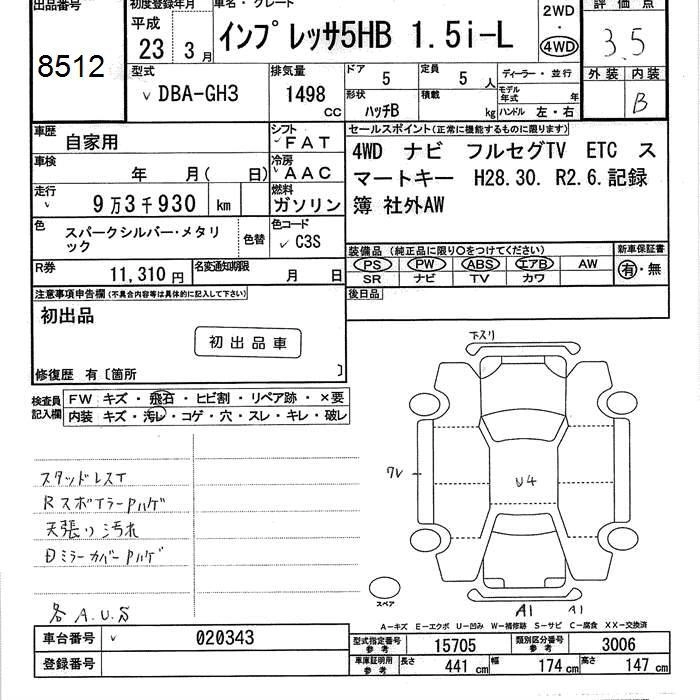 出品番号
8512
初度登録年月
平成
23 3月
車名・グレード
インプレッサ5HB 1.5i-L
2WD
・
4WD
評価点
3.5
外装 内装
B
型式
DBA-GH3
排気量
1498
CC
ドア
5
定員
5人
形状
ハッチB
積載
kg
ディーラー・並行
モデル年式 年
ハンドル 左・右
車歴
自家用
シフト
FAT
車検
年 月( 日)
冷房
AAC
走行
9万3千930 km
燃料
ガソリン
色
スパークシルバー・メタリ
ック
色替
色コード
C3S
R券
11,310円
名変通知期限
月 日
セールスポイント(正常に機能するものに限ります)
4WD ナビ フルセグTV ETC ス
マートキー H28.30. R2.6.記録
簿 社外AW
装備品 (純正品に限り○をつけてください)
PS PW ABS エアB AW
SR ナビ TV カワ
新車保証書
有・無
後日品
注意事項申告欄(不具合内容等は具体的に記入して下さい)
初出品
初出品車
修復歴 有〔箇所 〕
検査員
記入欄
FW キズ・飛石・ヒビ割・リペア跡・×要
内装 キズ・汚レ・コゲ・穴・スレ・キレ・破レ
スタッドレスT
Rスポイラー Pハゲ
天張り汚れ
Dミラーカバー Pハゲ
各A.U.S
下スリ
ワレ
U4
A1 A1
スペア
A-キズ E-エクボ U-凹み W-補修跡 S-サビ C-腐食 XX-交換済
車台番号
020343
登録番号
型式指定番号
参考
15705
類別区分番号
参考
3006
車庫証明用
参考
長さ 441 cm 幅 174 cm 高さ 147 cm